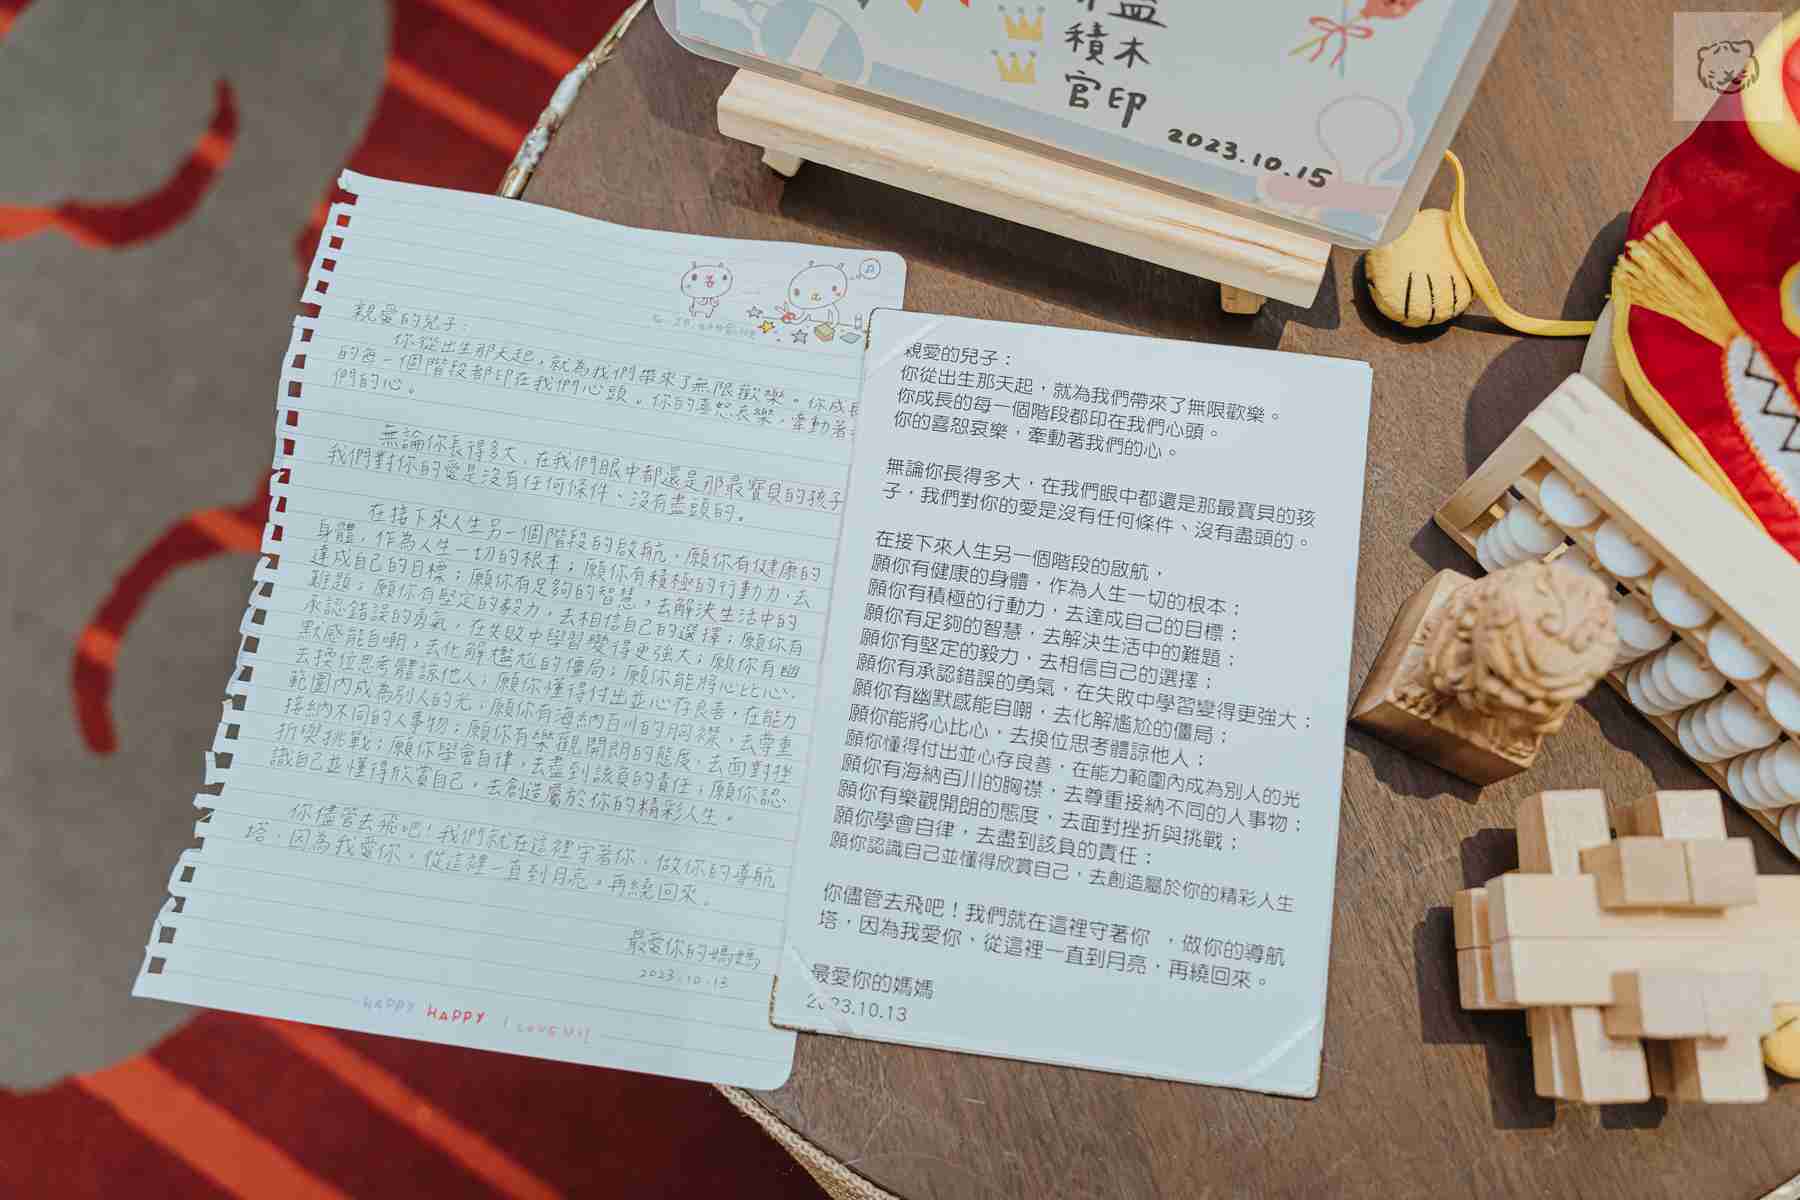 積木
官印
2023.10.15
親愛的兒子：
你從出生那天起，就為我們帶來了無限歡樂。你成長
的每一個階段都印在我們心頭。你的喜怒哀樂，牽動著
們的心。
無論你長得多大，在我們眼中都還是那最寶貝的孩子
我們對你的愛是沒有任何條件、沒有盡頭的。
在接下來人生另一個階段的啟航，願你有健康的
身體，作為人生一切的根本；願你有積極的行動力，去
達成自己的目標；願你有足夠的智慧，去解決生活中的
難題；願你有堅定的毅力，去相信自己的選擇；願你有
承認錯誤的勇氣，在失敗中學習變得更強大；願你有幽
默感能自嘲，去化解尷尬的僵局；願你能將心比心，
去換位思考體諒他人；願你懂得付出並心存良善，在能力
範圍內成為別人的光；願你有海納百川的胸襟，去尊重
接納不同的人事物；願你有樂觀開朗的態度，去面對挫
折與挑戰；願你學會自律，去盡到該負的責任；願你認
識自己並懂得欣賞自己，去創造屬於你的精彩人生。
你儘管去飛吧！我們就在這裡守著你，做你的導航
塔，因為我愛你，從這裡一直到月亮，再繞回來。
最愛你的媽媽
2023.10.13
HAPPY HAPPY I LOVE YOU
親愛的兒子：
你從出生那天起，就為我們帶來了無限歡樂。
你成長的每一個階段都印在我們心頭。
你的喜怒哀樂，牽動著我們的心。
無論你長得多大，在我們眼中都還是那最寶貝的孩
子，我們對你的愛是沒有任何條件、沒有盡頭的。
在接下來人生另一個階段的啟航，
願你有健康的身體，作為人生一切的根本；
願你有積極的行動力，去達成自己的目標；
願你有足夠的智慧，去解決生活中的難題；
願你有堅定的毅力，去相信自己的選擇；
願你有承認錯誤的勇氣，在失敗中學習變得更強大；
願你有幽默感能自嘲，去化解尷尬的僵局；
願你能將心比心，去換位思考體諒他人；
願你懂得付出並心存良善，在能力範圍內成為別人的光
願你有海納百川的胸襟，去尊重接納不同的人事物；
願你有樂觀開朗的態度，去面對挫折與挑戰；
願你學會自律，去盡到該負的責任；
願你認識自己並懂得欣賞自己，去創造屬於你的精彩人生
你儘管去飛吧！我們就在這裡守著你 ，做你的導航
塔，因為我愛你、從這裡一直到月亮，再繞回來。
最愛你的媽媽
2023.10.13